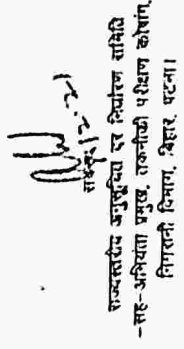 राज्यस्तरीय अनुसूचित दर निर्धारण समिति
-सह-अभियंता प्रमुख, तकनीकी परीक्षण कोषांग,
निगरानी विभाग, बिहार, पटना।